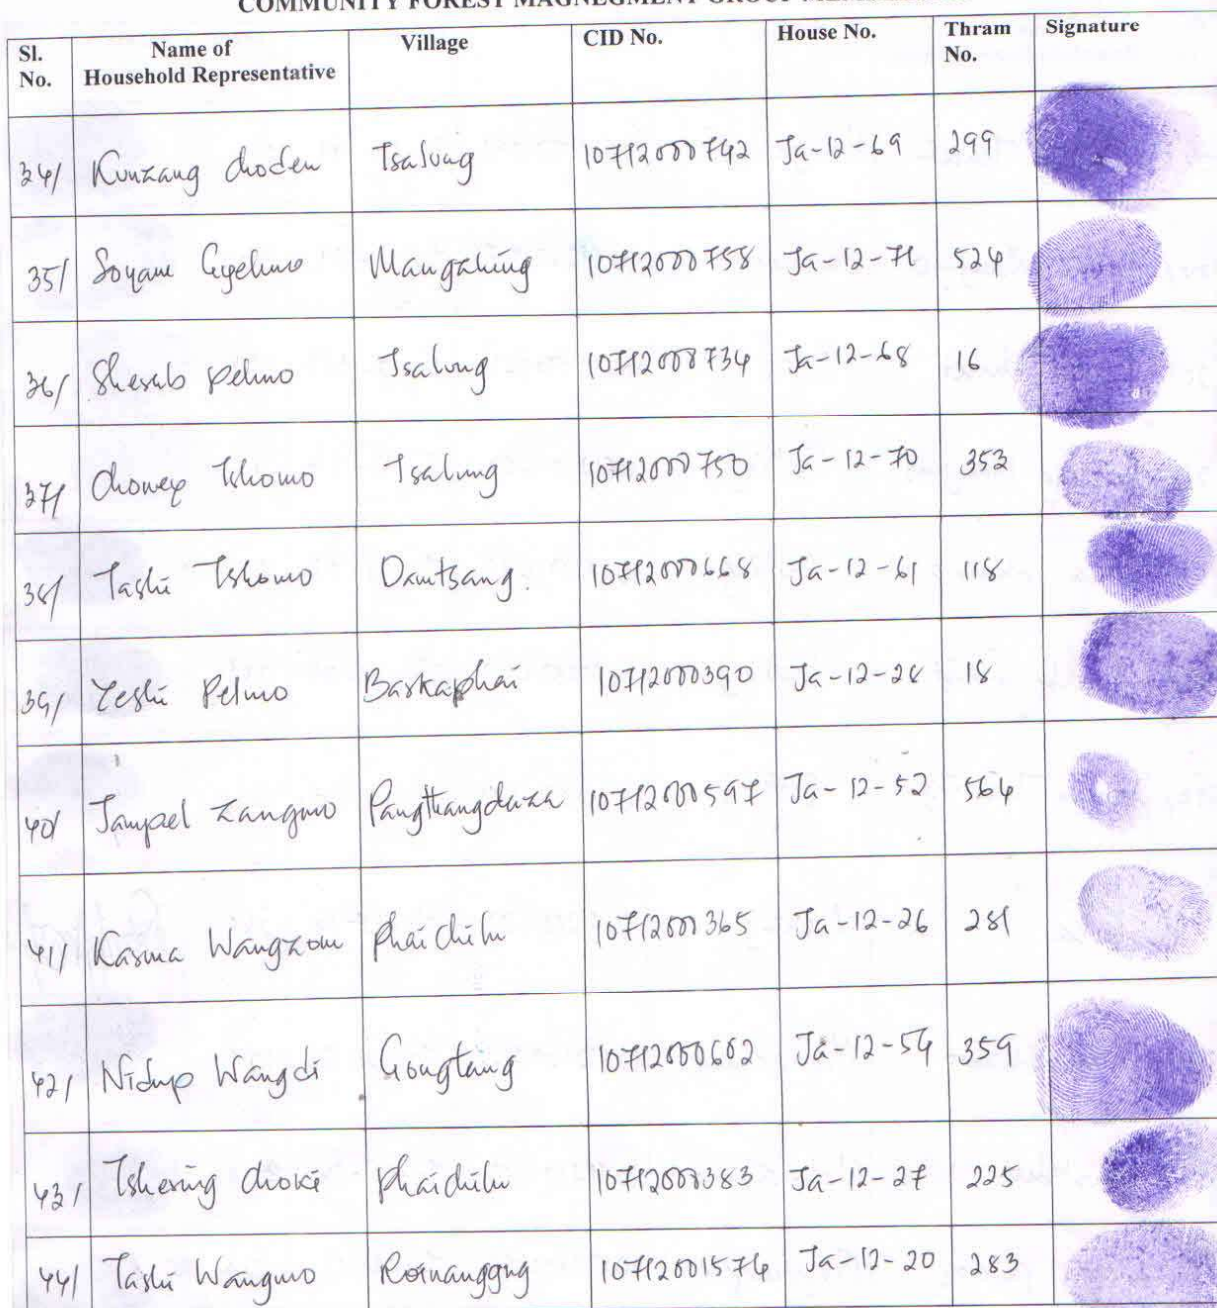 COMMUNITY FOREST MAGNEGMENT GROUP
Sl. No. Name of Household Representative Village CID No. House No. Thram No. Signature
34/ Kunzang choden Tsalung 10712000742 Ja-12-69 299
35/ Sonam Gyelmo Mangaling 10712000758 Ja-12-71 524
36/ Sherub pelmo Tsalung 10712000734 Ja-12-68 16
37/ Choney Tshomo Tsalung 10712000750 Ja-12-70 353
38/ Tashi Tshomo Damtsang. 10712000668 Ja-12-61 118
39/ Yeshi Pelmo Barkaphai 10712000390 Ja-12-28 18
40/ Jampel Zangmo Pangthangdaza 10712000597 Ja-12-52 564
41/ Karma Wangzom phaichilu 10712000365 Ja-12-26 281
42/ Nidup Wangdi Gongtang 10712000602 Ja-12-54 359
43/ Tshering choki phaichilu 10712000383 Ja-12-27 225
44/ Tashi Wangmo 10712001574 Ja-12-20 283